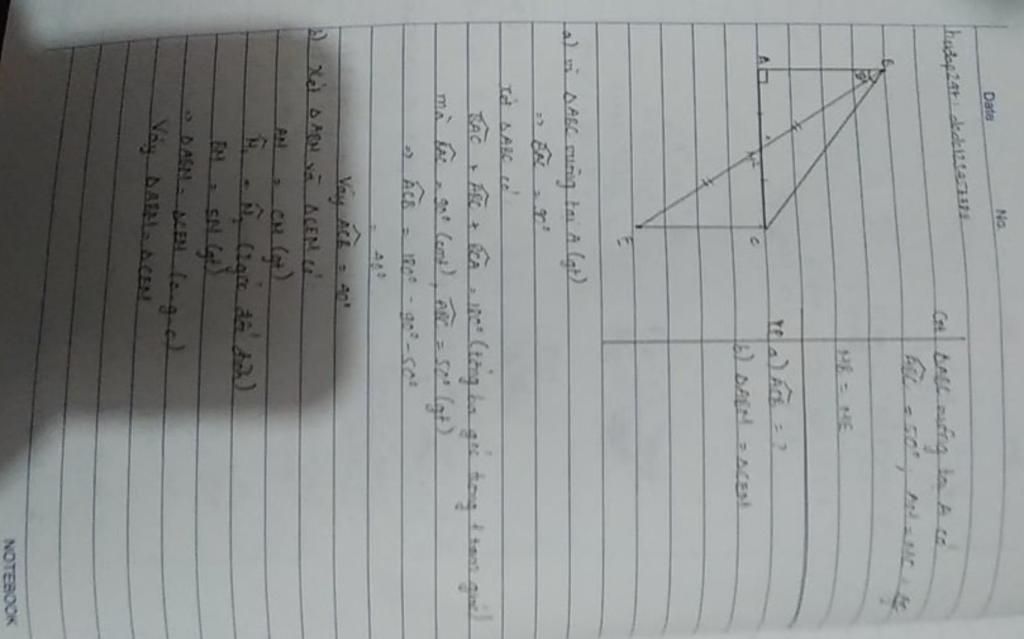 Date
No.
GT ΔABC vuông tại A có
ABC = 50°, AM = MC,
MB = ME
KL a) ACB = ?
b) ΔABM = ΔCEM
B
A
M
C
E
a) Vì ΔABC vuông tại A (gt)
⇒ BAC = 90°
Xét ΔABC có
BAC + ABC + BCA = 180° (tổng ba góc trong 1 tam giác)
mà BAC = 90° (cmt), ABC = 50° (gt)
⇒ ACB = 180° - 90° - 50°
= 40°
Vậy ACB = 40°
b) Xét ΔABM và ΔCEM có
AM = CM (gt)
M₁ = M₂ (2 góc đối đỉnh)
BM = EM (gt)
⇒ ΔABM = ΔCEM (c-g-c)
Vậy ΔABM = ΔCEM
NOTEBOOK